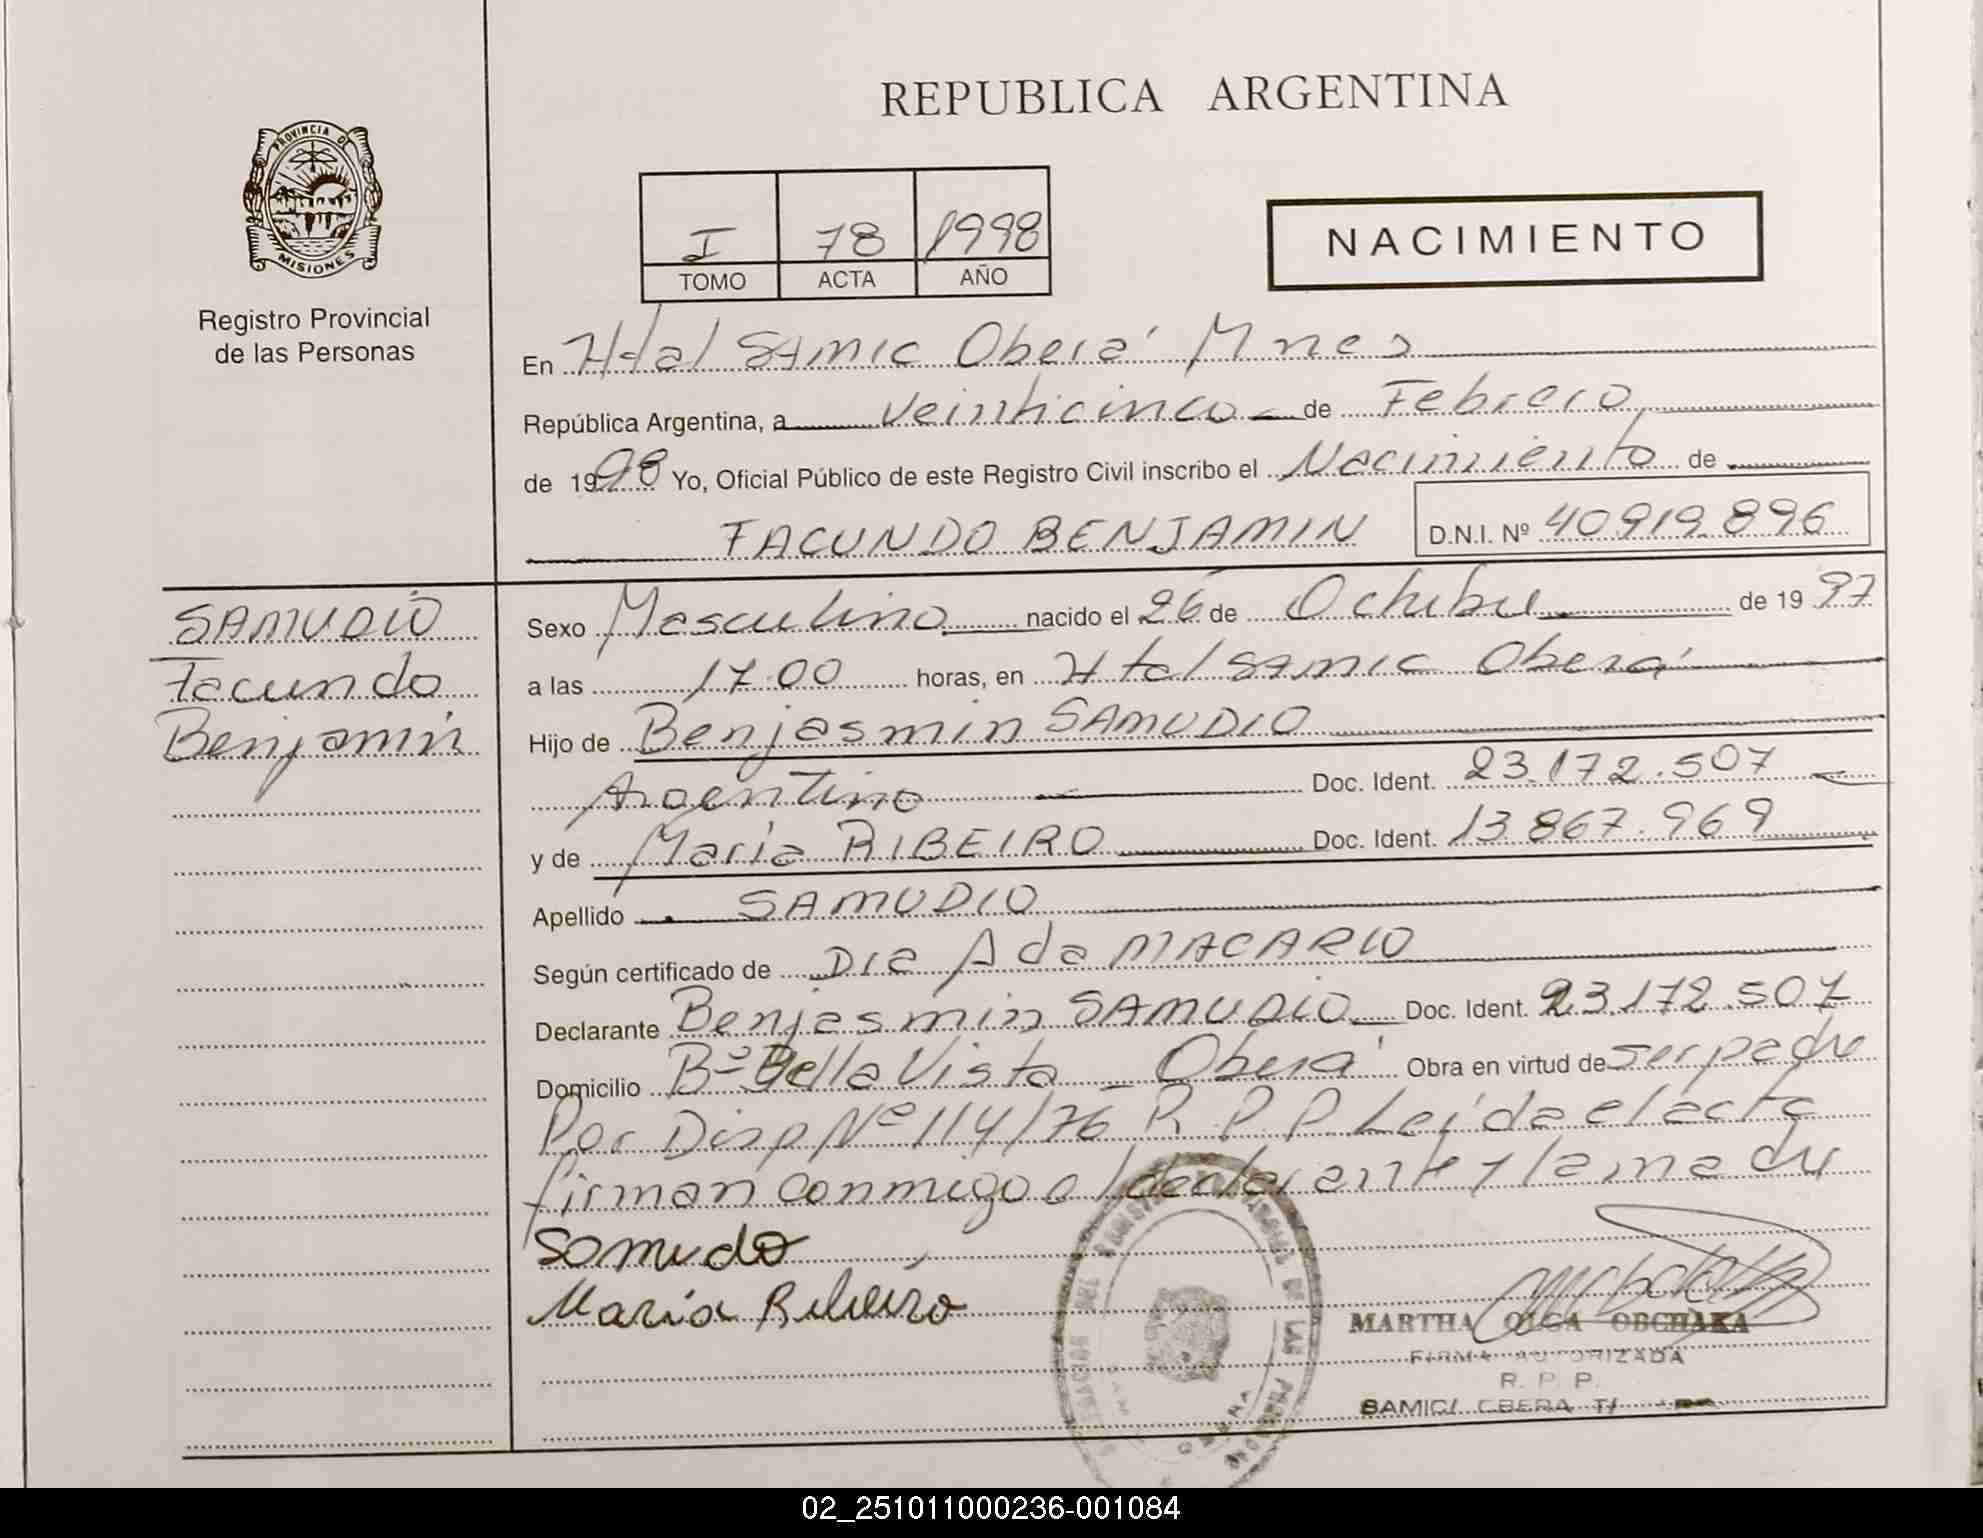 REPUBLICA ARGENTINA
PROVINCIA DE
MISIONES
Registro Provincial
de las Personas
I 78 1998
TOMO ACTA AÑO
NACIMIENTO
En Htal SAMIC Oberá Mnes
República Argentina, a veinticinco de Febrero
de 1998 Yo, Oficial Público de este Registro Civil inscribo el Nacimiento de
FACUNDO BENJAMIN D.N.I. Nº 40919.896
SAMUDIO
Facundo
Benjamín
Sexo Masculino nacido el 26 de Octubre de 1997
a las 17.00 horas, en Htal SAMIC Oberá
Hijo de Benjasmin SAMUDIO
Argentino Doc. Ident. 23.172.507
y de Maria RIBEIRO Doc. Ident. 13.867.969
Apellido SAMUDIO
Según certificado de Dra Ada MACARIO
Declarante Benjasmin SAMUDIO Doc. Ident. 23.172.507
Domicilio Bº Bella Vista - Oberá Obra en virtud de ser padre
Por Disp Nº 114/76 R.P.P. Leída el acta
firman conmigo el declarante y la madre
Samudo
Maria Ribeiro
MARTHA OLGA OBCHAKA
FIRMA AUTORIZADA
R. P. P.
SAMIC/ OBERA
02_251011000236-001084